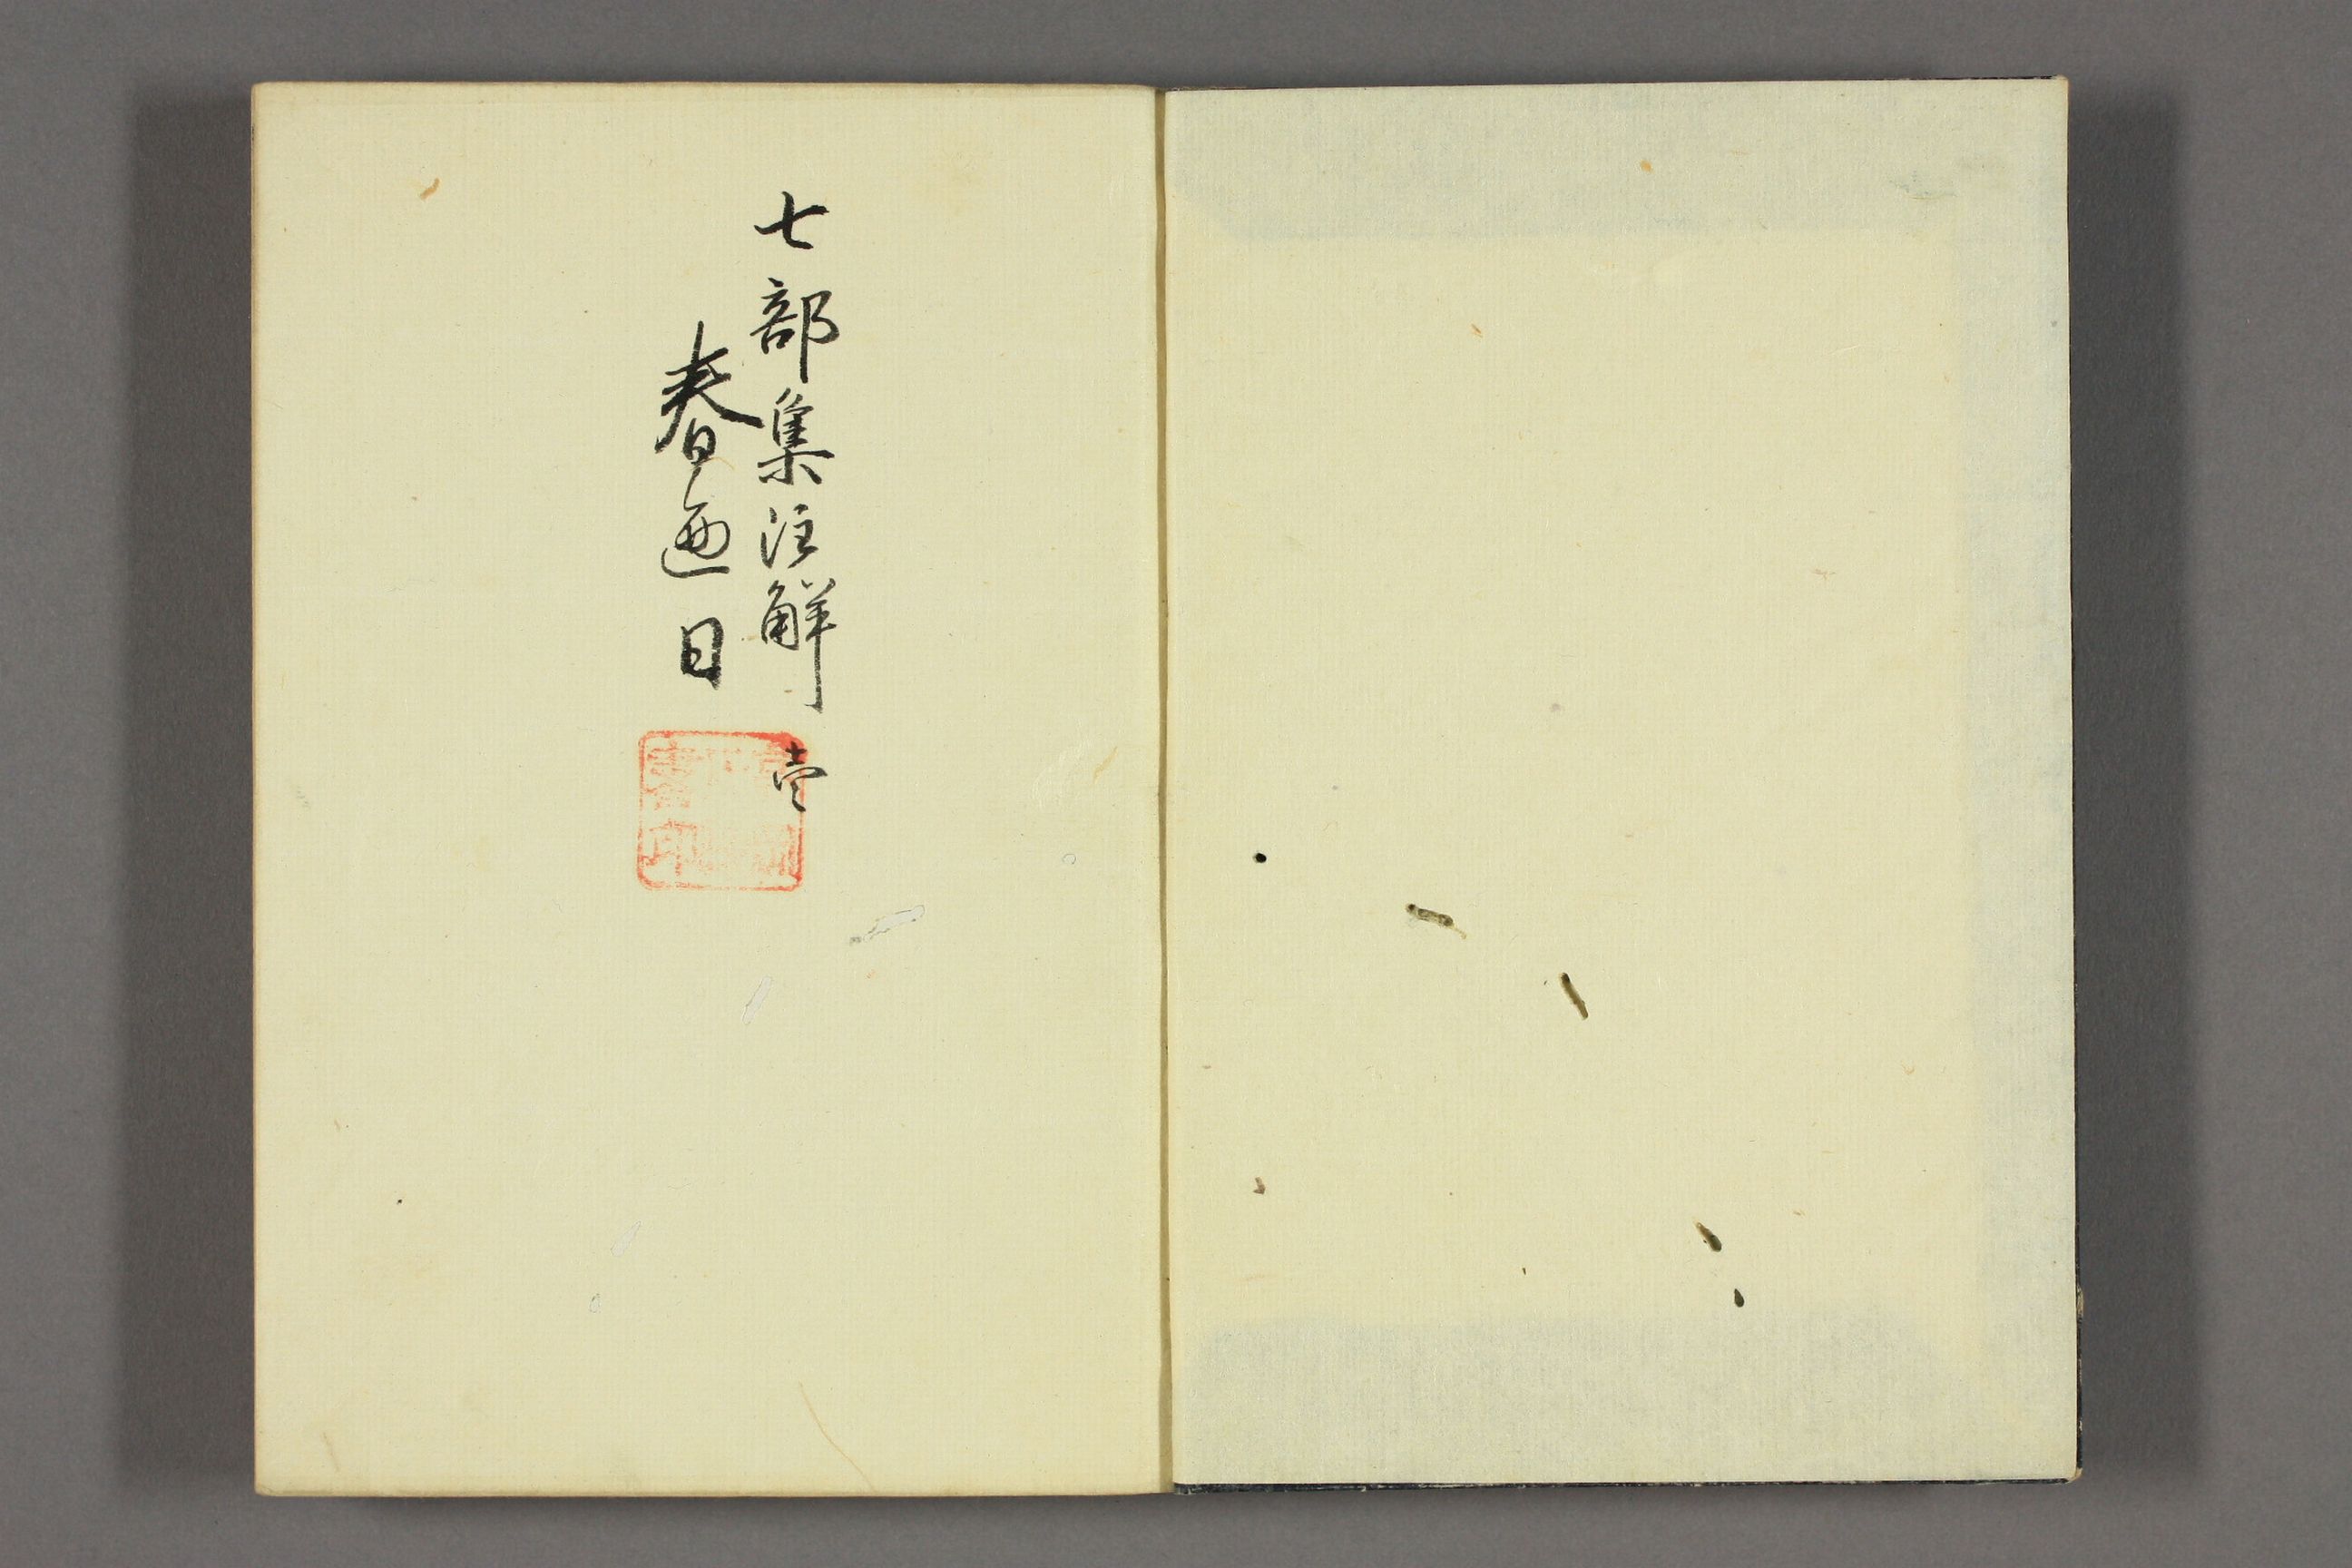 七部集注解 壱
春画日